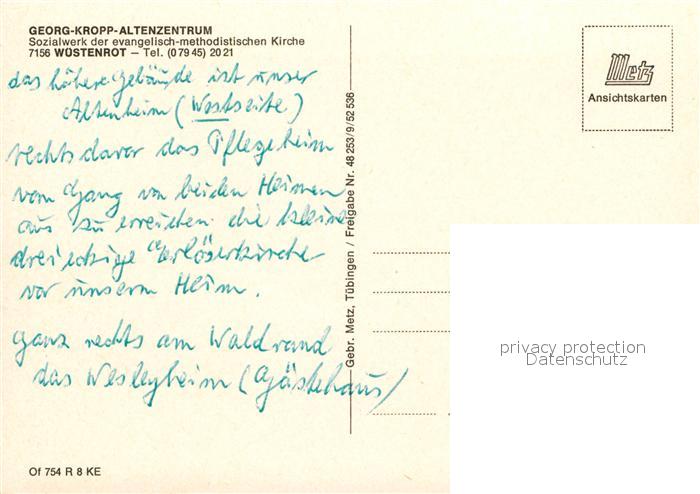 GEORG-KROPP-ALTENZENTRUM
Sozialwerk der evangelisch-methodistischen Kirche
7156 WÜSTENROT – Tel. (0 79 45) 20 21
das höhere Gebäude ist unser
Altenheim (Westseite)
rechts davor das Pflegeheim
vom Gang von beiden Heimen
aus zu erreichen die kleine
dreieckige Erlöserkirche
vor unserm Heim.
ganz rechts am Waldrand
das Wesleyheim (Gästehaus)
Of 754 R 8 KE
Gebr. Metz, Tübingen / Freigabe Nr. 48 253/9/52 536
Metz
Ansichtskarten
privacy protection
Datenschutz